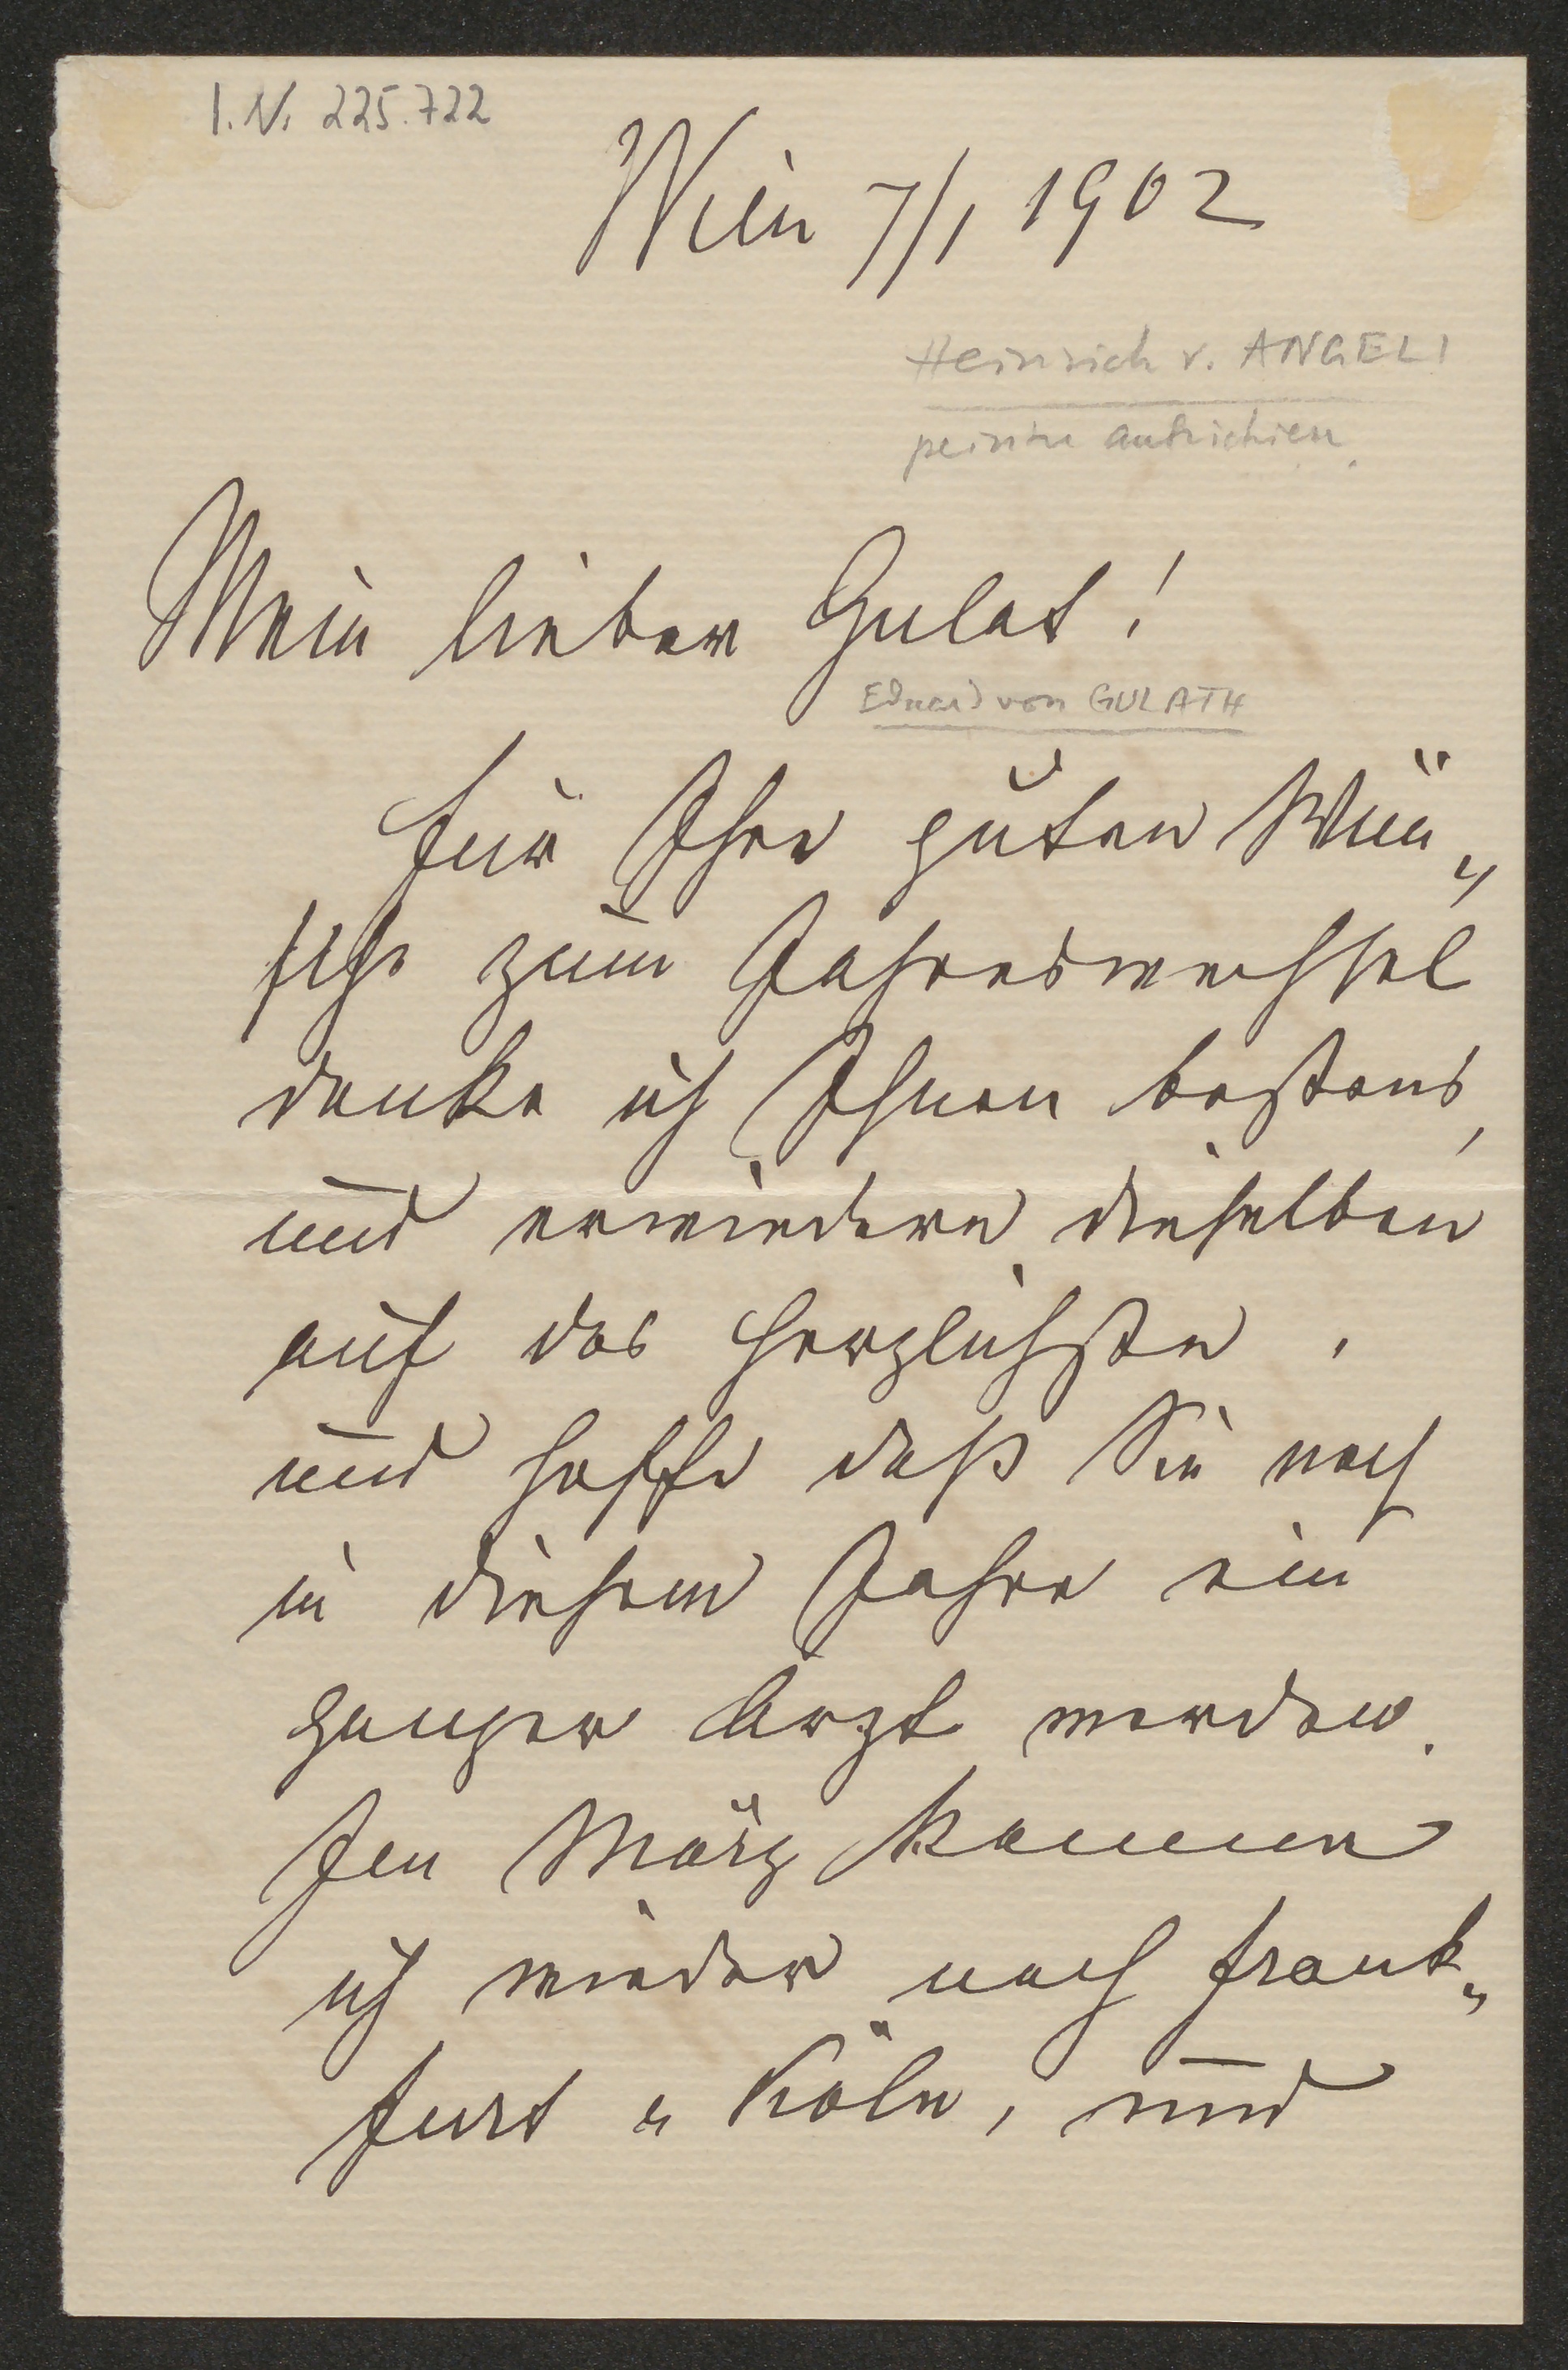 I.N. 225.722
Wien 7/1 1902
Heinrich v. ANGELI
peintre autrichien.
Mein lieber Gulat!
Eduard von GULATH
Für Ihre guten Wün„
sche zum Jahreswechsel
danke ich Ihnen bestens,
und erwiedere dieselben
auf das herzlichste,
und hoffe daß Sie noch
in diesem Jahre ein
ganzer Arzt werden.
Im März komme
ich wieder nach Frank„
furt u Köln, und